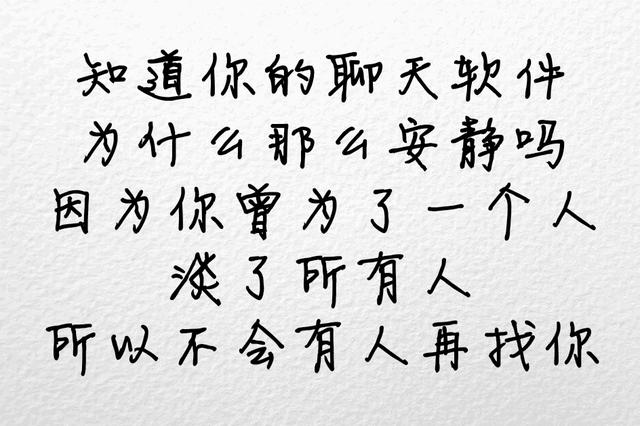 知道你的聊天软件
为什么那么安静吗
因为你曾为了一个人
淡了所有人
所以不会有人再找你